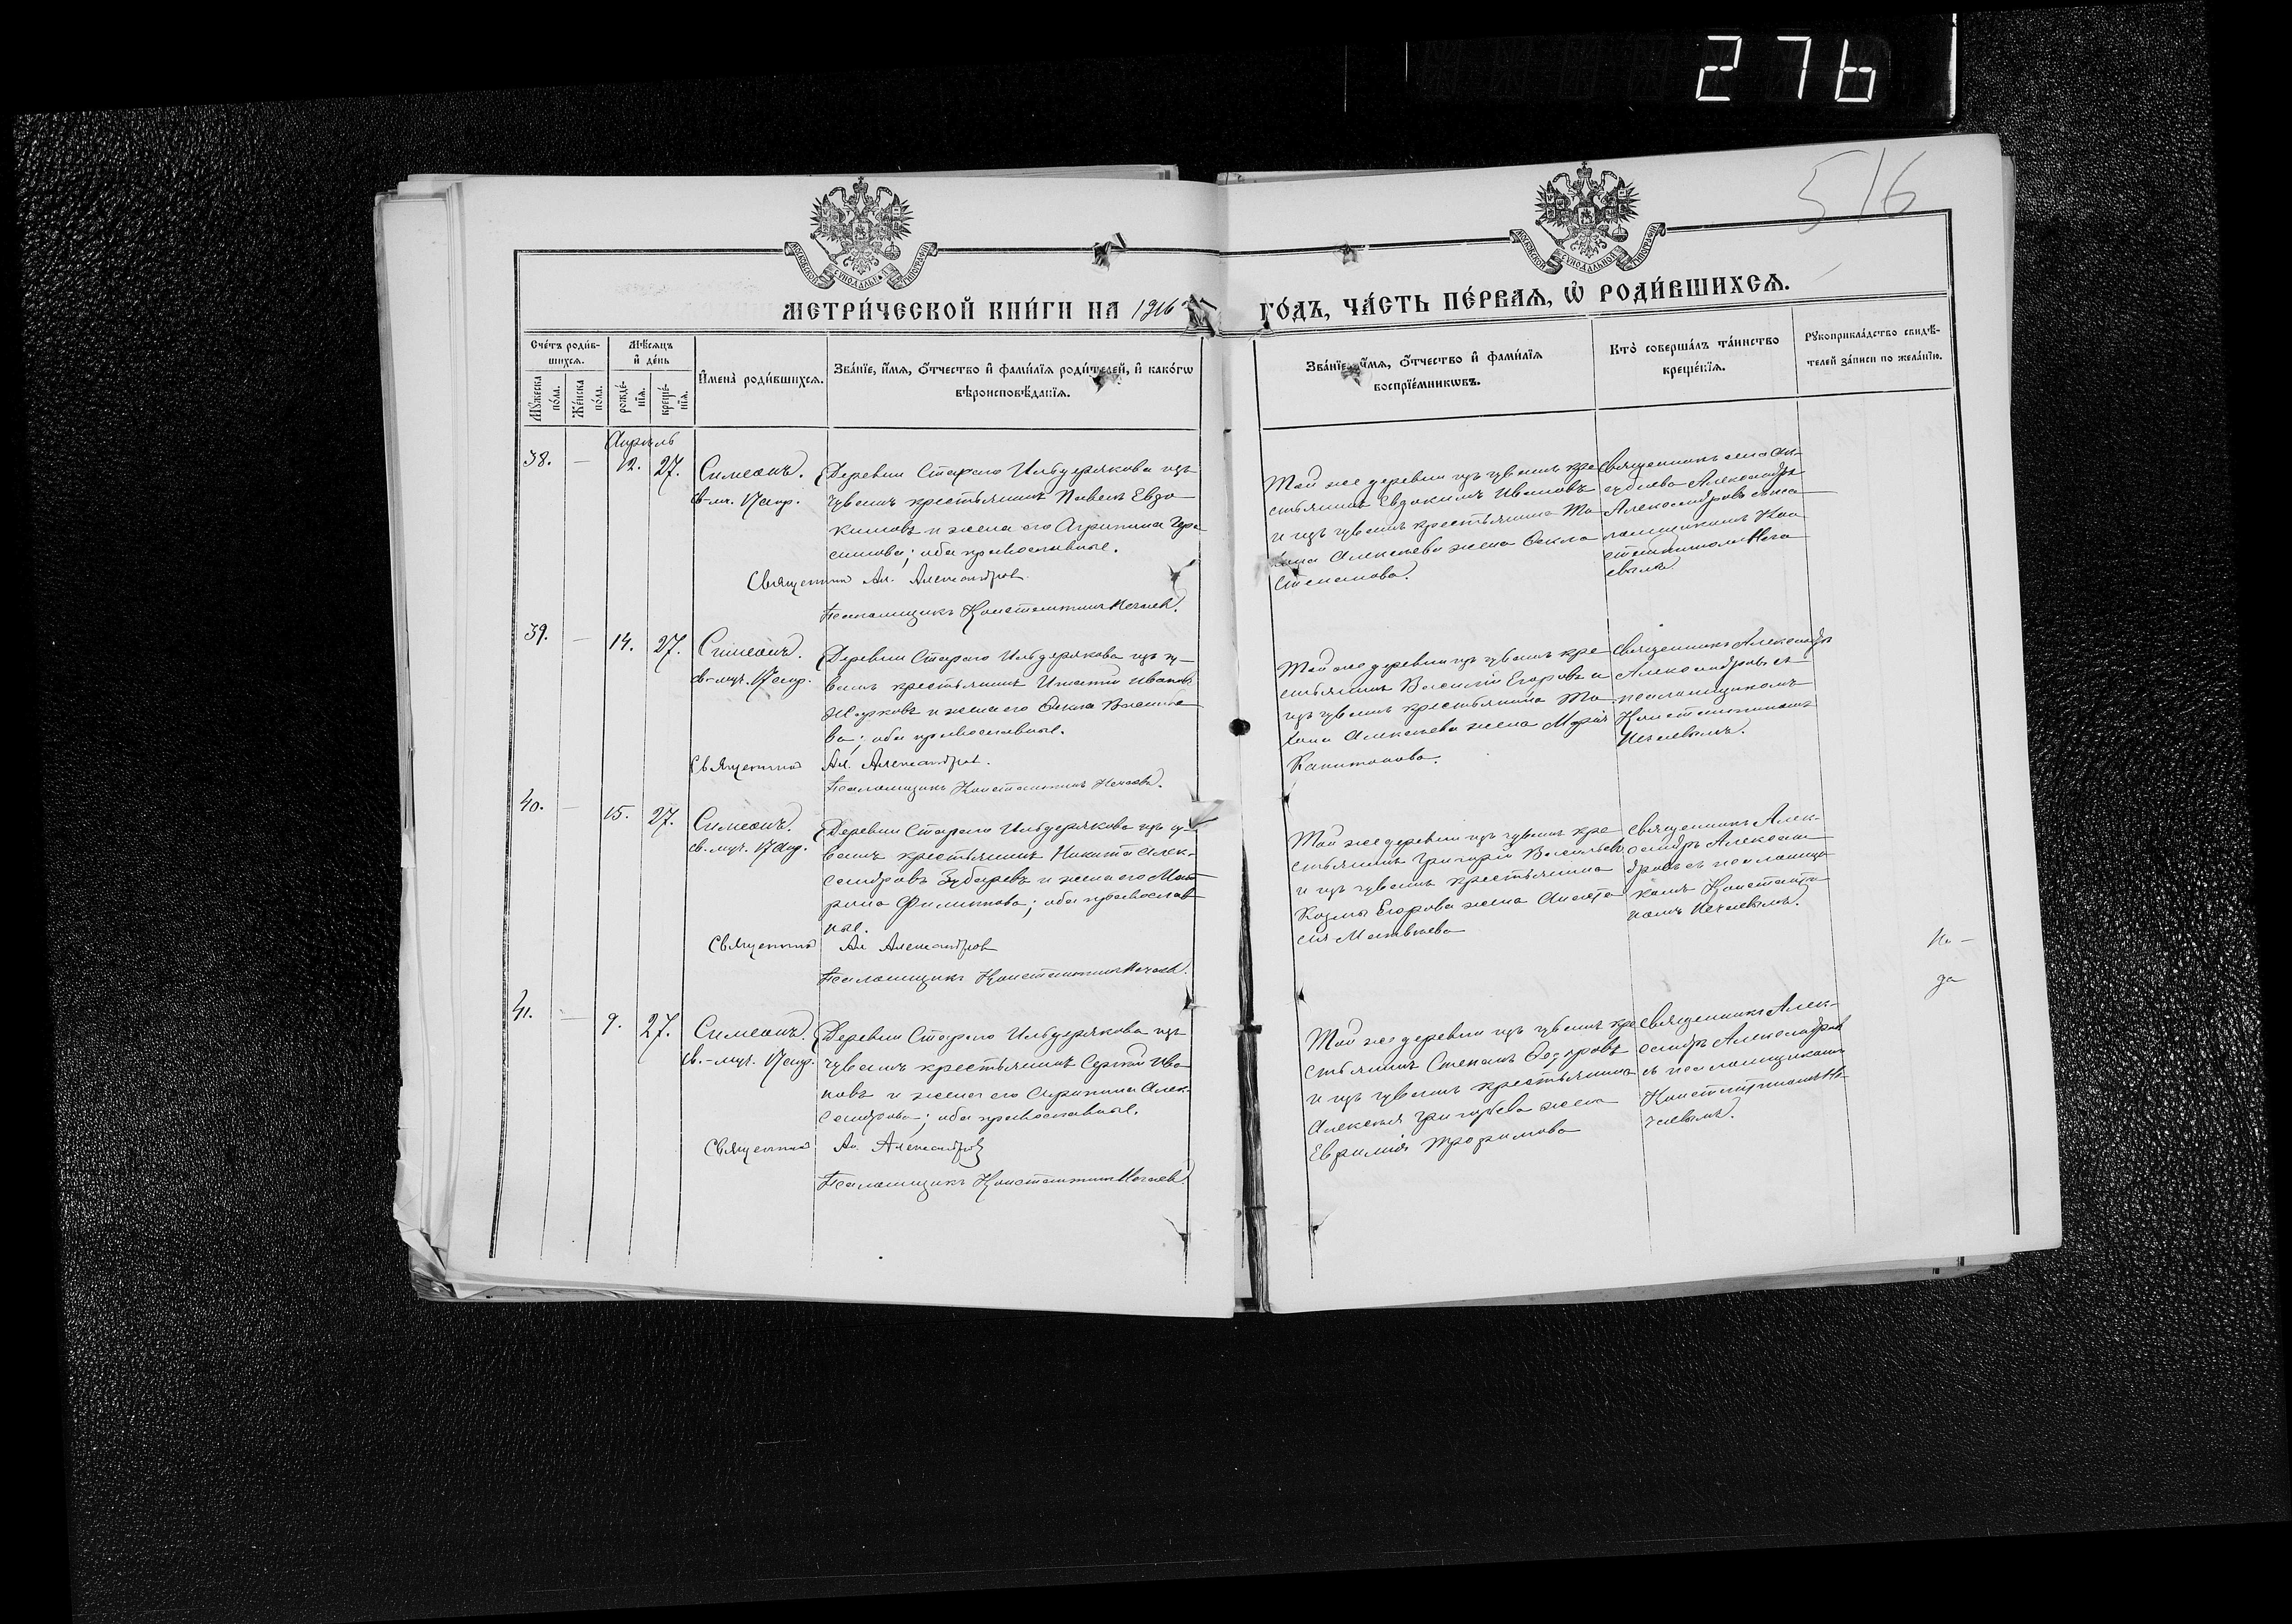 276
516
МОСКОВСКОЙ СѴНОДАЛЬНОЙ ТИПОГРАФІИ
МОСКОВСКОЙ СѴНОДАЛЬНОЙ ТИПОГРАФІИ
МЕТРИ́ЧЕСКОЙ КНИ́ГИ НА 1916
ГО́ДЪ, ЧА́СТЬ ПЕ́РВАЯ, Ѡ҆ РОДИ́ВШИХСЯ.
Сче́тъ роди́в-
шихся.
Мѣ́сяцъ
и҆ де́нь
Му́жеска
по́ла.
Же́нска
по́ла.
рожде́-
нїя.
креще́-
нїя.
И҆мена̀ роди́вшихся.
Зва́нїе, и҆́мя, ѻ҆́тчество и҆ фами́лїя роди́телей, и҆ како́гѡ
вѣроисповѣ́данїя.
Зва́нїе, и҆́мя, ѻ҆́тчество и҆ фами́лїя
воспрїе́мникѡвъ.
Кто̀ соверша́лъ та́инство
креще́нїя.
Рукоприкла́дство свидѣ́-
телей за́писи по жела́нїю.
Апрѣль
38. — 12. 27. Симеонъ.
св-м. 17 апр.
Деревни Стараго Ильдерякова изъ
чувашъ крестьянинъ Павелъ Евдо-
кимовъ и жена его Агрипина Гера-
симова; оба православные.
Священник Ал. Александров
Псаломщикъ Константинъ Нечаевъ.
Той же деревни изъ чувашъ кре-
стьянинъ Евдокимъ Ивановъ
и изъ чувашъ крестьянина
Алексѣева жена Ѳекла
Степанова.
Священникъ села
Александръ
Александровъ съ пса-
ломщикомъ Кон-
стантиномъ Неча-
евымъ.
39. — 14. 27. Симеонъ.
св-муч. 17 апр.
Деревни Стараго Ильдерякова изъ чу-
вашъ крестьянинъ Игнатій Ивановъ
и жена его Ѳекла Василье-
ва; оба православные.
Священник Ал. Александров.
Псаломщикъ Константинъ Нечаевъ.
Той же деревни изъ чувашъ кре-
стьянинъ Василій Егоровъ и
изъ чувашъ крестьянина
Алексѣева жена Марія
Капитонова.
Священникъ Александръ
Александровъ съ
псаломщикомъ
Константиномъ
Нечаевымъ.
40. — 15. 27. Симеонъ.
св.-муч. 17 апр.
Деревни Стараго Ильдерякова изъ чу-
вашъ крестьянинъ Никита Алек-
сандровъ Зубаревъ и жена его Мат-
рона Филиппова; оба православ-
ные.
Священник Ал Александров
Псаломщикъ Константинъ Нечаевъ.
Той же деревни изъ чувашъ кре-
стьянинъ Григорій Васильевъ
и изъ чувашъ крестьянина
Козмы Егорова жена Анаста-
сія Матвѣева
Священникъ Алек-
сандръ Алексан-
дровъ съ псаломщи-
комъ Константи-
номъ Нечаевымъ.
41. — 9. 27. Симеонъ.
св.-муч. 17 апр.
Деревни Стараго Ильдерякова изъ
чувашъ крестьянинъ Сергій Ива-
новъ и жена его Агрипина Алек-
сандрова; оба православные.
Священник Ал. Александров
Псаломщикъ Константинъ Нечаевъ.
Той же деревни изъ чувашъ кре-
стьянинъ Степанъ Ѳедоровъ
и изъ чувашъ крестьянина
Алексѣя Григорьева жена
Евфимія Трофимова
Священникъ Алек-
сандръ Александровъ
съ псаломщикомъ
Константиномъ Не-
чаевымъ.
да